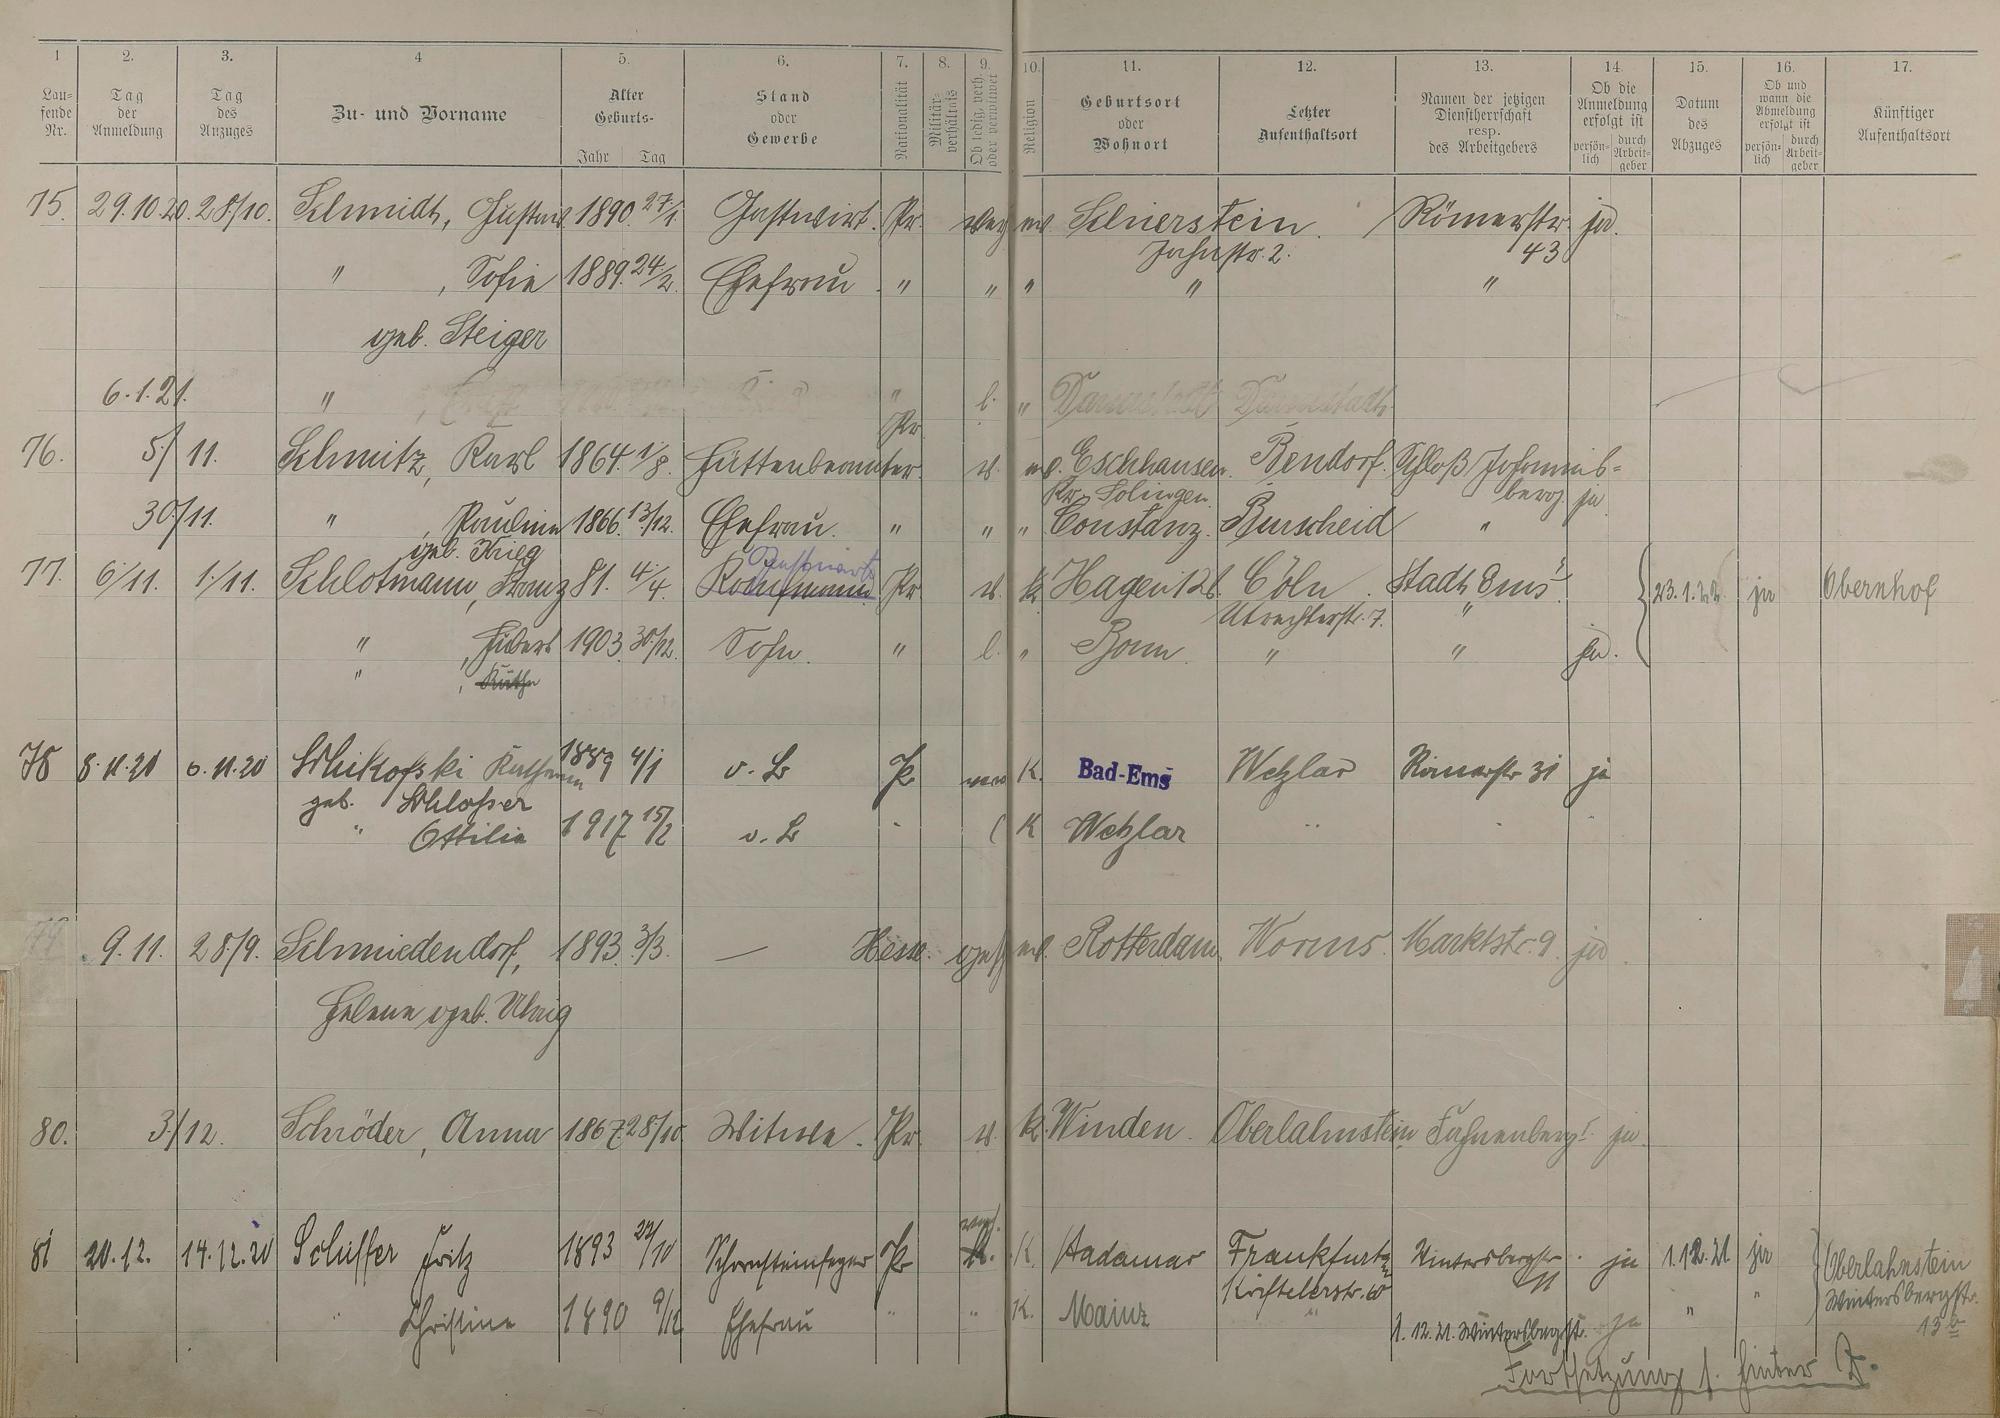 1 2. 3. 4 5. 6. 7. 8. 9. 10. 11. 12. 13. 14. 15. 16. 17.
Lau-
fende
Nr.
Tag
der
Anmeldung
Tag
des
Anzuges
Zu- und Vorname
Alter
Geburts-
Jahr Tag
Stand
oder
Gewerbe
Nationalität
Militär-
verhältnis
Ob ledig, verh.
oder verwitwet
Religion
Geburtsort
oder
Wohnort
Letzter
Aufenthaltsort
Namen der jetzigen
Dienstherrschaft
resp.
des Arbeitgebers
Ob die
Anmeldung
erfolgt ist
persön-
lich
durch
Arbeit-
geber
Datum
des
Abzuges
Ob und
wann die
Abmeldung
erfolgt ist
persön-
lich
durch
Arbeit-
geber
Künftiger
Aufenthaltsort
75. 29.10.20. 28./10. Schmidt, Gustav 1890 27/1. Gastwirt. Pr. ev. Schierstein. Römerstr. ja.
Jahnstr. 2. 43
" , Sofie 1889. 24/2. Ehefrau. " " " " "
geb. Steiger
6.1.21. " " l. " Darmstadt Darmstadt
76. 5./11. Schmitz, Karl 1864. 1/8. Hüttenbeamter. Pr. v. ev. Eschhausen. Bendorf. Schloß Johannis-
Kr. Solingen. berg. ja
30./11. " , Pauline 1866. 13/12. Ehefrau. " " " Constanz. Burscheid "
geb. Krieg
77. 6./11. 1./11. Schlotmann, Franz 81. 4/4. Kaufmann Pr. v. k. Hagen i. Cöln. Stadt Ems. 23.1.22 ja Obernhof
Gastwirt
Utrechterstr. 7. "
" , Hubert 1903. 30./12. Sohn. " l. " Bonn. " " ja.
" ,
78 8.11.20 6.11.20 Katharina 1889 4/1 o. B Pr K. Bad-Ems Wetzlar Römerstr 31 ja
geb. Schlosser
" Ottilie 1917 15/2 o. B K Wetzlar "
79 9.11. 28./9. Schmiedendorf, 1893. 3/3. — Hesse. ev. Rotterdam Worms. Marktstr. 9. ja.
Helene geb. Ulrig
80. 3./12. Schröder, Anna 1867. 28/10. Witwe. Pr. v. k. Winden. Oberlahnstein Fahnenberg. ja.
81 20.12. 14.12.20 Schiffer Fritz 1893 22/10 Schornsteinfeger Pr verh. K. Hadamar Frankfurt Wintersbergstr. ja 1.12.21 ja Oberlahnstein
Kriftelerstr. 60 11 Wintersbergstr.
" Christine 1890 9/12 Ehefrau " " K. Mainz " 1.12.21. Wintersbergstr. ja " " 13b
Fortsetzung s. hinter Z.